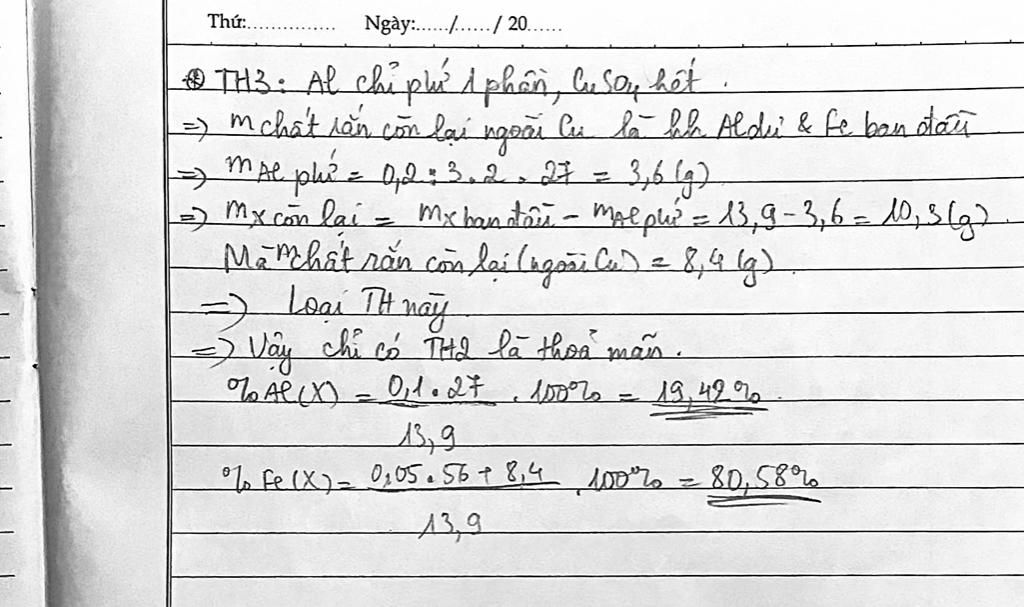 Thứ:............... Ngày:....../....../ 20......
⊛ TH3: Al chỉ phứ 1 phần, CuSO4 hết.
=> m chất rắn còn lại ngoài Cu là hh Al dư & Fe ban đầu
=> m Al phứ = 0,2 : 3 . 2 . 27 = 3,6 (g)
=> m X còn lại = m X ban đầu - m Al phứ = 13,9 - 3,6 = 10,3 (g)
Mà m chất rắn còn lại (ngoài Cu) = 8,4 (g)
=> Loại TH này
=> Vậy chỉ có TH2 là thoả mãn.
% Al (X) = 0,1 . 27 / 13,9 . 100% = 19,42%
% Fe (X) = 0,05 . 56 + 8,4 / 13,9 . 100% = 80,58%